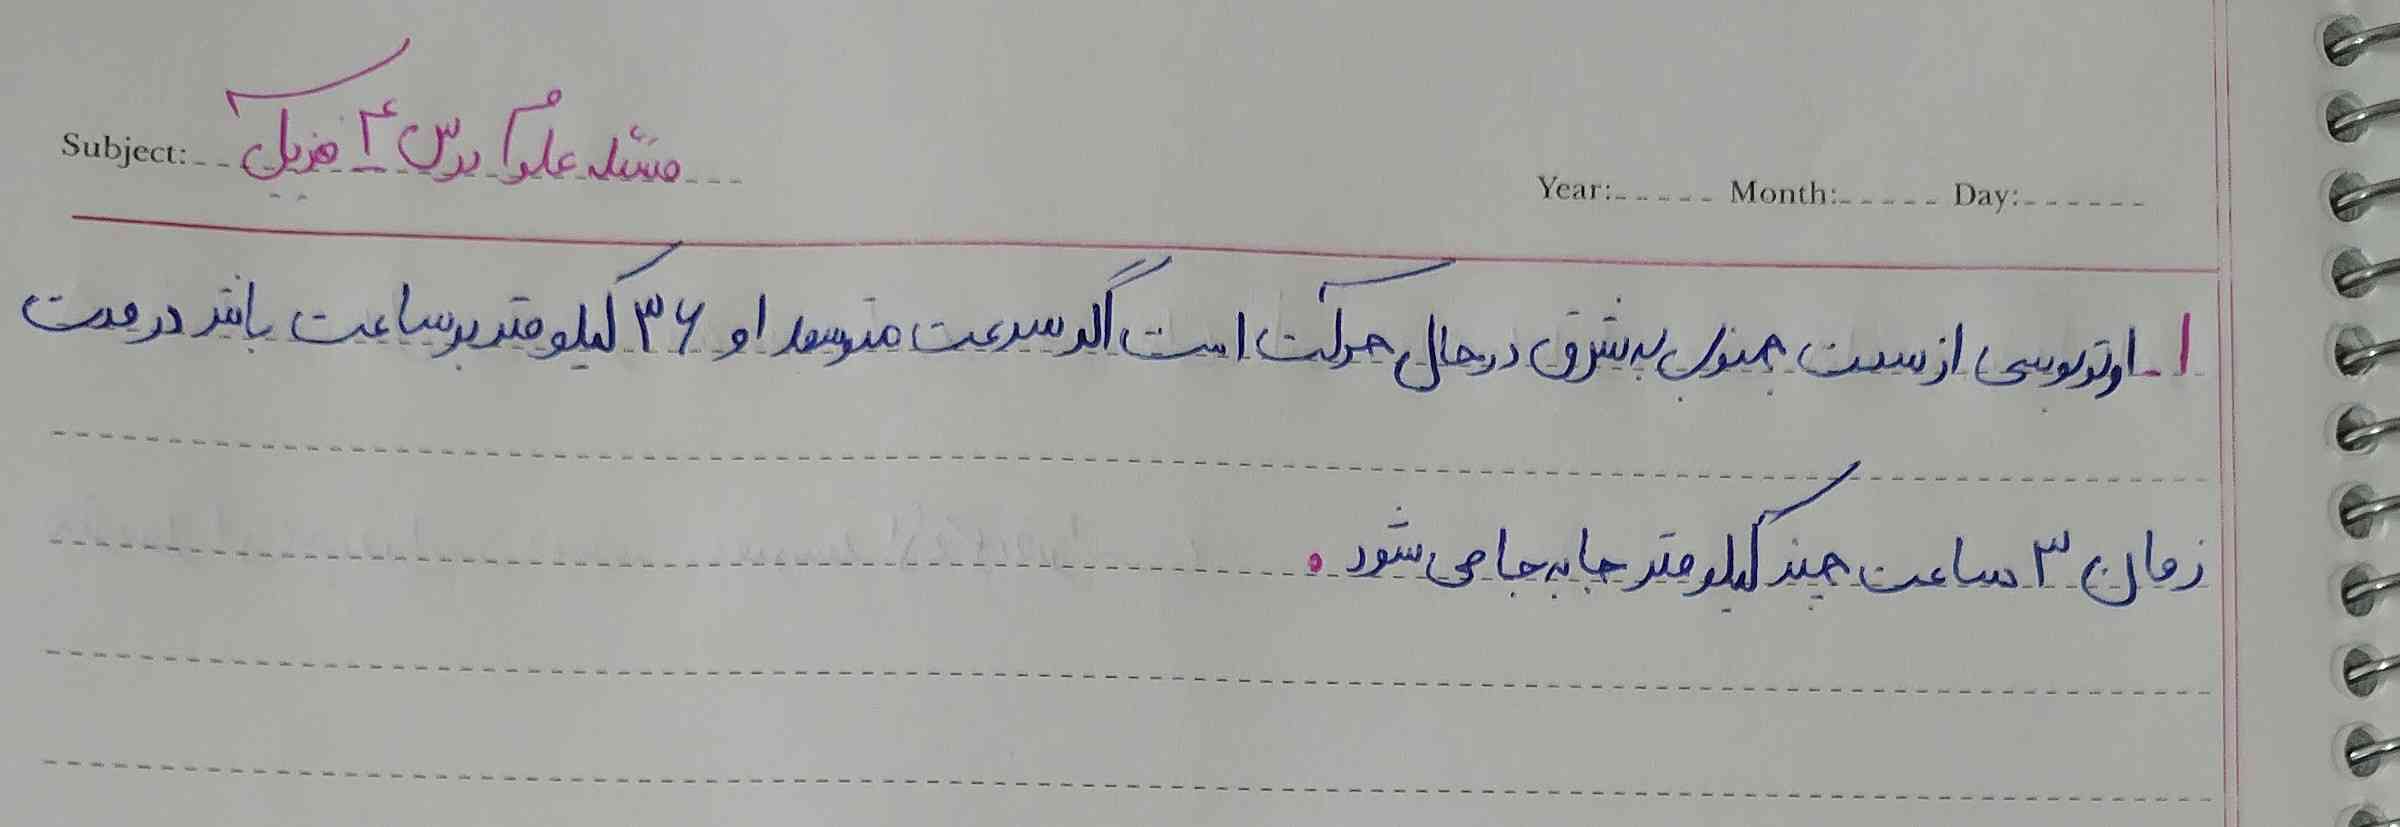 Subject: مسئله علوم درس ۴ فیزیک
Year: Month: Day:
۱_ اوتوبوسی از سمت جنوب به شرق در حال حرکت است اگر سرعت متوسط او ۳۶ کیلومتر بر ساعت باشد در مدت
زمان ۳ ساعت چند کیلومتر جا به جا می شود .